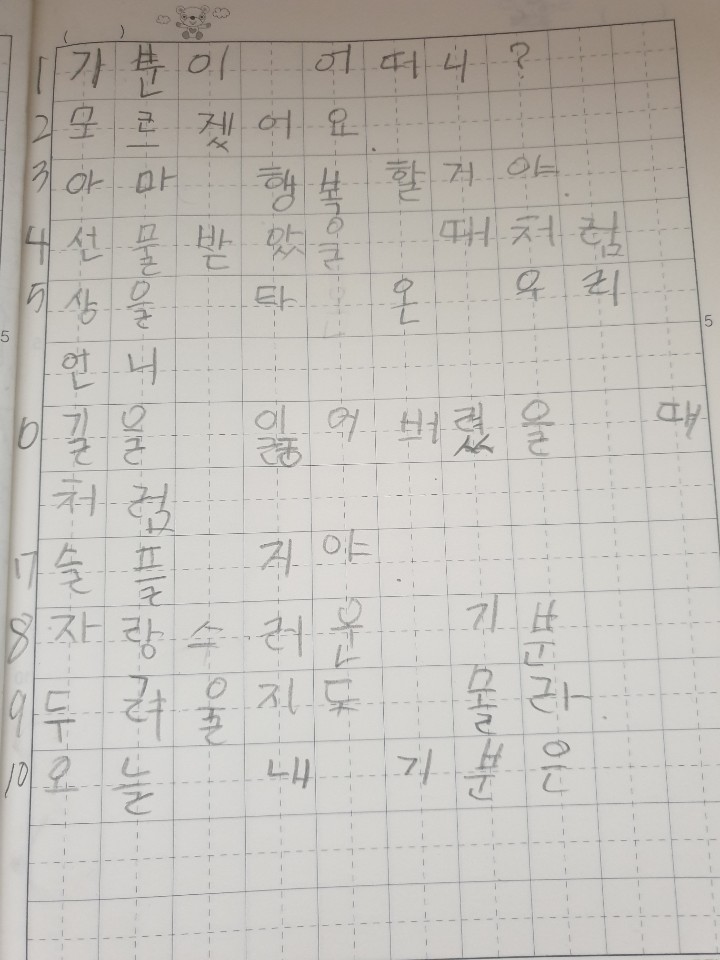 ( )
1 가분이 어떠니?
2 모르겠어요.
3 아마 행복할거야.
4 선물받았을 때처럼
5 상을 타 온 우리
언니
6 길을 잃어버렸을 때
처럼
7 슬플 지야.
8 자랑스러운 기분
9 두려울지도 몰라.
10 오늘 내 기분은
5
5